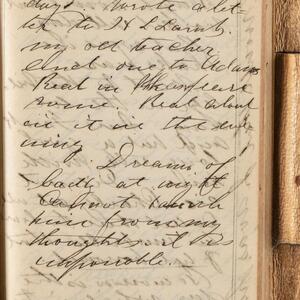 days wrote a let-
ter to H L Lamb
my old teacher
and one to Adams
Read in Shakespeare
some. Read aloud
in it in the eve
ning.
Dreams of
badly at night
Cannot
him from my
thoughts it is
impossible.—